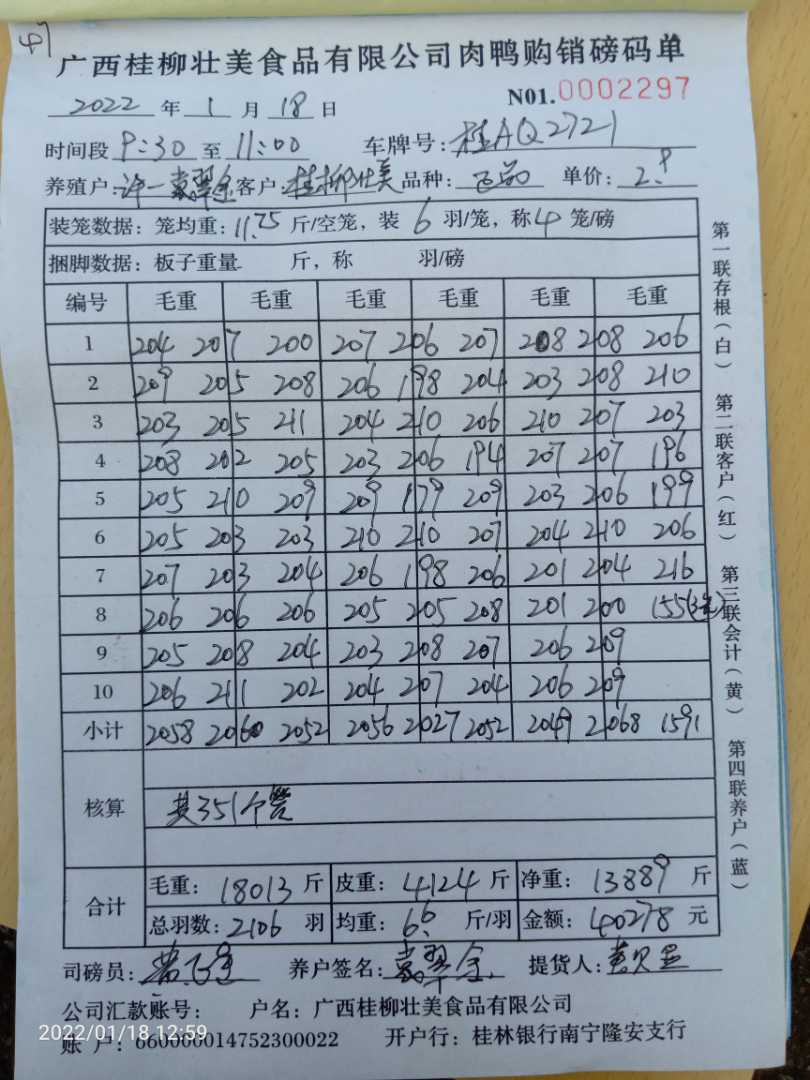 47
广西桂柳壮美食品有限公司肉鸭购销磅码单
2022 年 1 月 18 日 N01.0002297
时间段 9:30 至 11:00 车牌号:桂AQ2721
养殖户: 客户:桂柳壮美 品种: 单价: 2.9
装笼数据:笼均重:11.75 斤/空笼,装 6 羽/笼,称 4 笼/磅
捆脚数据:板子重量 斤,称 羽/磅
编号 毛重 毛重 毛重 毛重 毛重 毛重
1 204 207 200 207 206 207 208 208 206
2 209 205 208 206 198 204 203 208 210
3 203 205 211 204 210 206 210 207 203
4 208 202 205 203 206 194 207 207 196
5 205 210 209 209 179 209 203 206 199
6 205 203 203 210 210 207 204 210 206
7 207 203 204 206 198 206 201 204 216
8 206 206 206 205 205 208 201 200 155(3笼)
9 205 208 204 203 208 207 206 209
10 206 211 202 204 207 204 206 209
小计 2058 2060 2052 2056 2027 2052 2049 2068 1591
核算
共351个笼
合计
毛重: 18013 斤 皮重: 4124 斤 净重: 13889 斤
总羽数: 2106 羽 均重: 6.6 斤/羽 金额: 40278 元
司磅员: 养户签名: 提货人:
公司汇款账号: 户名:广西桂柳壮美食品有限公司
账 户:660000014752300022 开户行:桂林银行南宁隆安支行
2022/01/18 12:59
第一联存根(白) 第二联客户(红) 第三联会计(黄) 第四联养户(蓝)